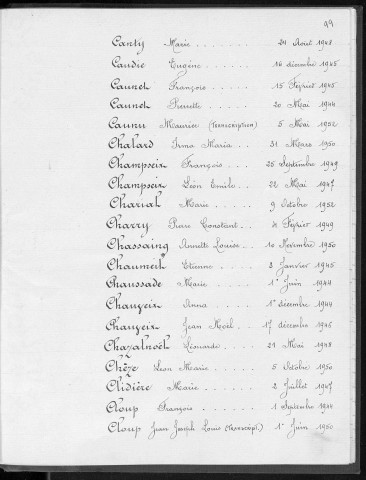 99
Canty Marie . . . . . . . 24 Août 1948
Caudie Eugène . . . . . . 16 décembre 1945
Caunet François . . . . . 15 Février 1945
Caunet Pierrette . . . . . 20 Mai 1944
Caunu Maurice (Transcription) 5 Mai 1952
Chalard Irma Maria . . . 31 Mars 1950
Champseix François . . . . 25 Septembre 1949
Champseix Léon Emile . . 22 Mai 1947
Charial Marie . . . . . 9 Octobre 1952
Charry Pierre Constant . . Février 1949
Chassaing Annette Louise . . 10 Novembre 1950
Chaumeil Etienne . . . . . 2 Janvier 1945
Chaussade Marie . . . . . 1er Juin 1944
Chauzeix Anna . . . . . 1er décembre 1944
Chauzeix Jean Noël . . 17 décembre 1946
Chazalnoël Léonarde . . . 21 Mai 1948
Chèze Léon Marie . . . . 5 Octobre 1950
Clidière Marie . . . . . 2 Juillet 1947
Cloup François . . . . . . 1 Septembre 1944
Cloup Jean Joseph Louis (Transcript.) 1er Juin 1950